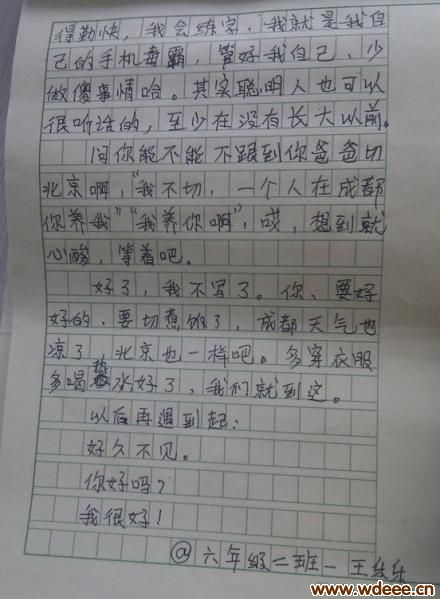 得勤快，我会练字，我就是我自
己的手机毒霸，管好我自己、少
做傻事情哈。其实聪明人也可以
很听话的，至少在没有长大以前。
问你能不能不跟到你爸爸切
北京啊，“我不切，一个人在成都
你养我”“我养你啊”，哎，想到就
心酸，等着吧。
好了，我不写了。你、要好
好的，要切煮饭了，成都天气也
凉了，北京也一样吧。多穿衣服
多喝热水好了，我们就到这。
以后再遇到起：
好久不见。
你好吗？
我很好！
@六年级二班—王乐乐
www.wdeee.cn